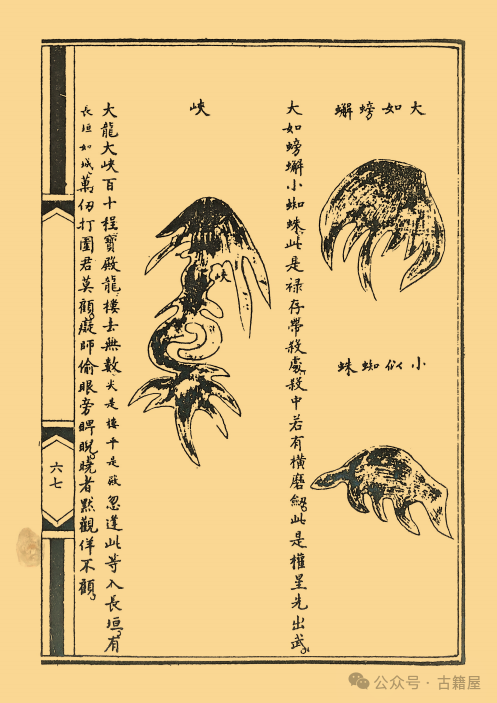 大如螃蠏
小似蜘蛛
大如螃蠏小蜘蛛此是禄存帶殺處殺中若有橫磨劍此是權星先出武
峽
峽
大龍大峽百十程寶殿龍樓去無數尖是樓平是殿忽逢此等入長垣有
長垣如城萬仞打圍君莫顧癡師偷眼旁睥睨曉者默觀佯不顧
六七
公众号 · 古籍屋